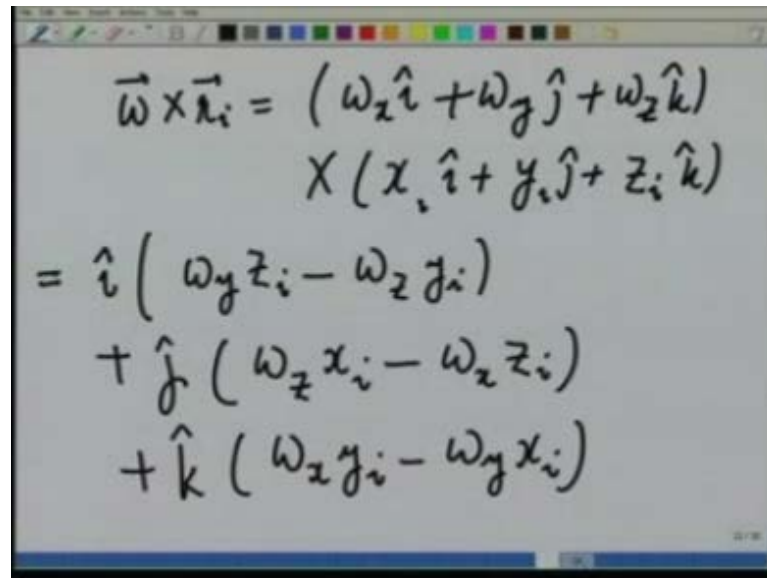 ω⃗ × r⃗ᵢ = (ωₓ î + ω_y ĵ + ω_z k̂)
× (xᵢ î + yᵢ ĵ + zᵢ k̂)
= î (ω_y zᵢ − ω_z yᵢ)
+ ĵ (ω_z xᵢ − ωₓ zᵢ)
+ k̂ (ωₓ yᵢ − ω_y xᵢ)